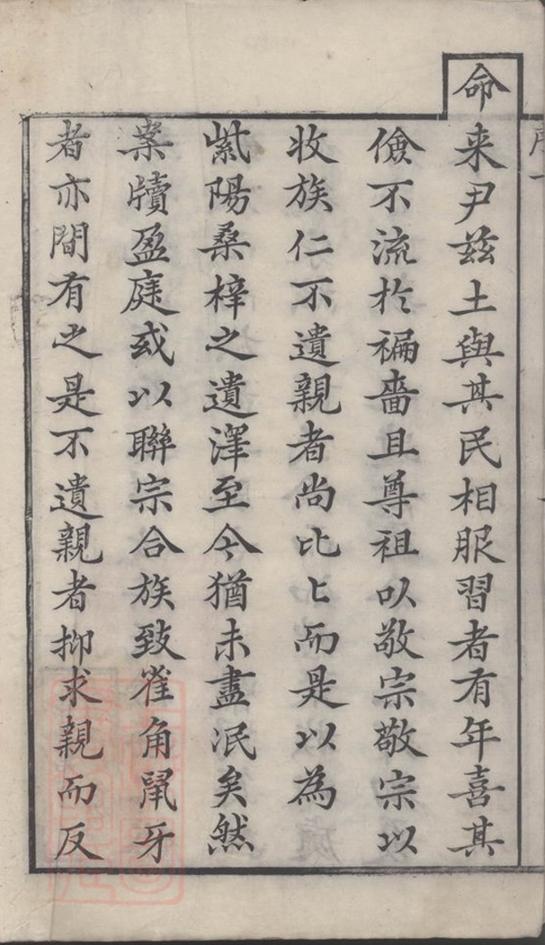 命来尹茲土與其民相服習者有年喜其
儉不流扵褊嗇且尊祖以敬宗敬宗以
收族仁不遺親者尚比〻而是以為
紫陽桑梓之遺澤至今猶未盡泯矣然
案牘盈庭或以聯宗合族致雀角鼠牙
者亦間有之是不遺親者抑求親而反